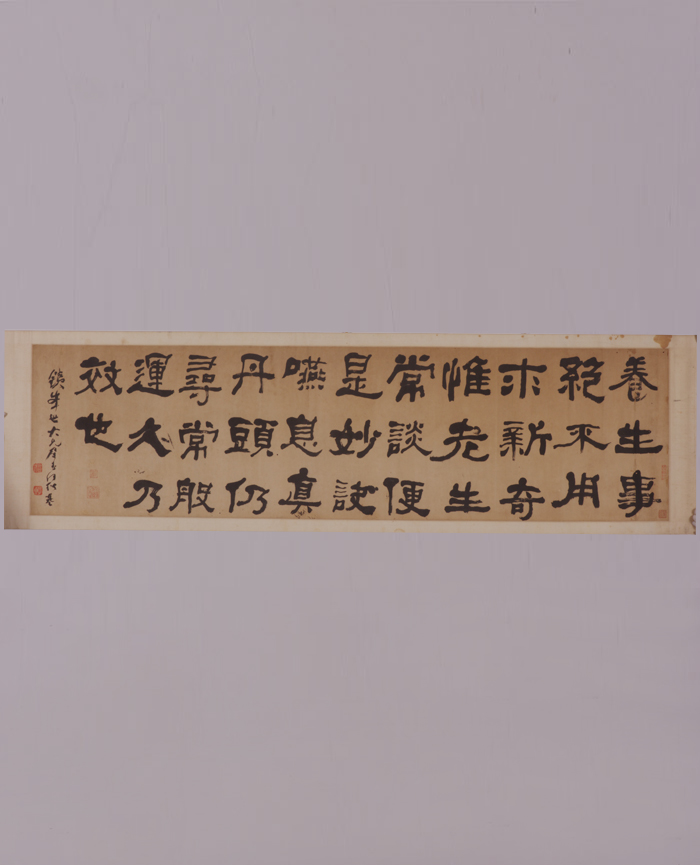 養生事
絕不用
求新奇
惟老生
常談便
是妙訣
嚥息真
丹頭仍
尋常般
運火乃
效也
鐵